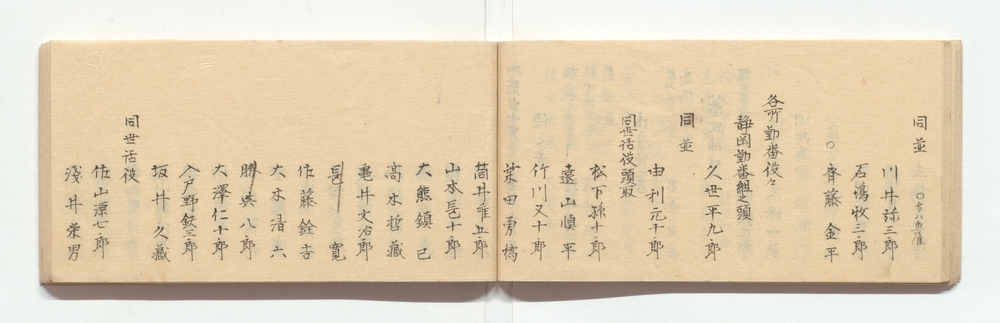 同並
川井弥三郎
石鴻牧三郎
○ 斉藤金平
各所勤番役々
静岡勤番組之頭
久世平九郎
同並
由利元十郎
同世話役頭取
松下孫十郎
遠山慎平
竹川又十郎
柴田勇橘
筒井隼五郎
山本長十郎
大熊鎮己
高木哲蔵
亀井文治郎
寛
佐藤銓吉
大木清六
勝与八郎
大澤仁十郎
入戸野鉄三郎
坂井久蔵
同世話役
佐山源七郎
浅井栄男